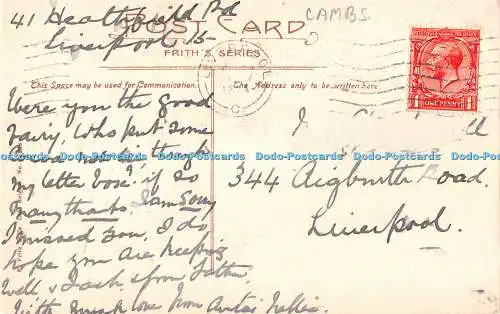 41 Heathfield Rd
Liverpool 15
CAMBS.
POST CARD
FRITH'S SERIES
This Space may be used for Communication.
The Address only to be written here.
ONE PENNY
Were you the good
Fairy, who put some
through
my letter box? if so
Many thanks. I am sorry
I missed you, I do
hope you are keeping
well & Jack, & from father
With much love from Auntie Nellie.
344 Aigburth Road.
Liverpool.
Dodo-Postcards Dodo-Postcards Dodo-Postcards Dodo-Postcards Dodo-Postcards Dodo-Postcards